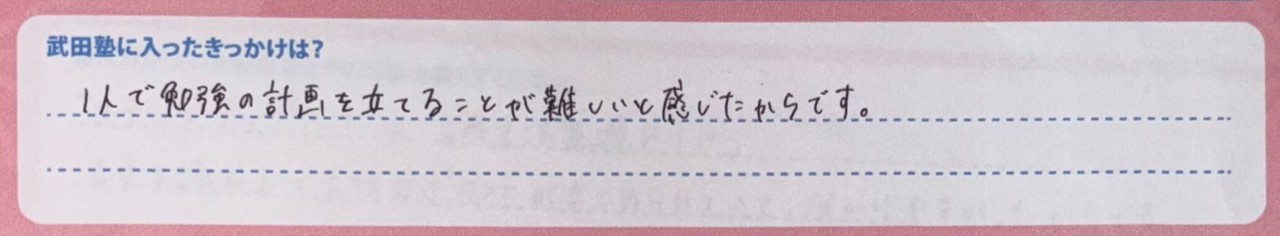 武田塾に入ったきっかけは?
1人で勉強の計画を立てることが難しいと感じたからです。